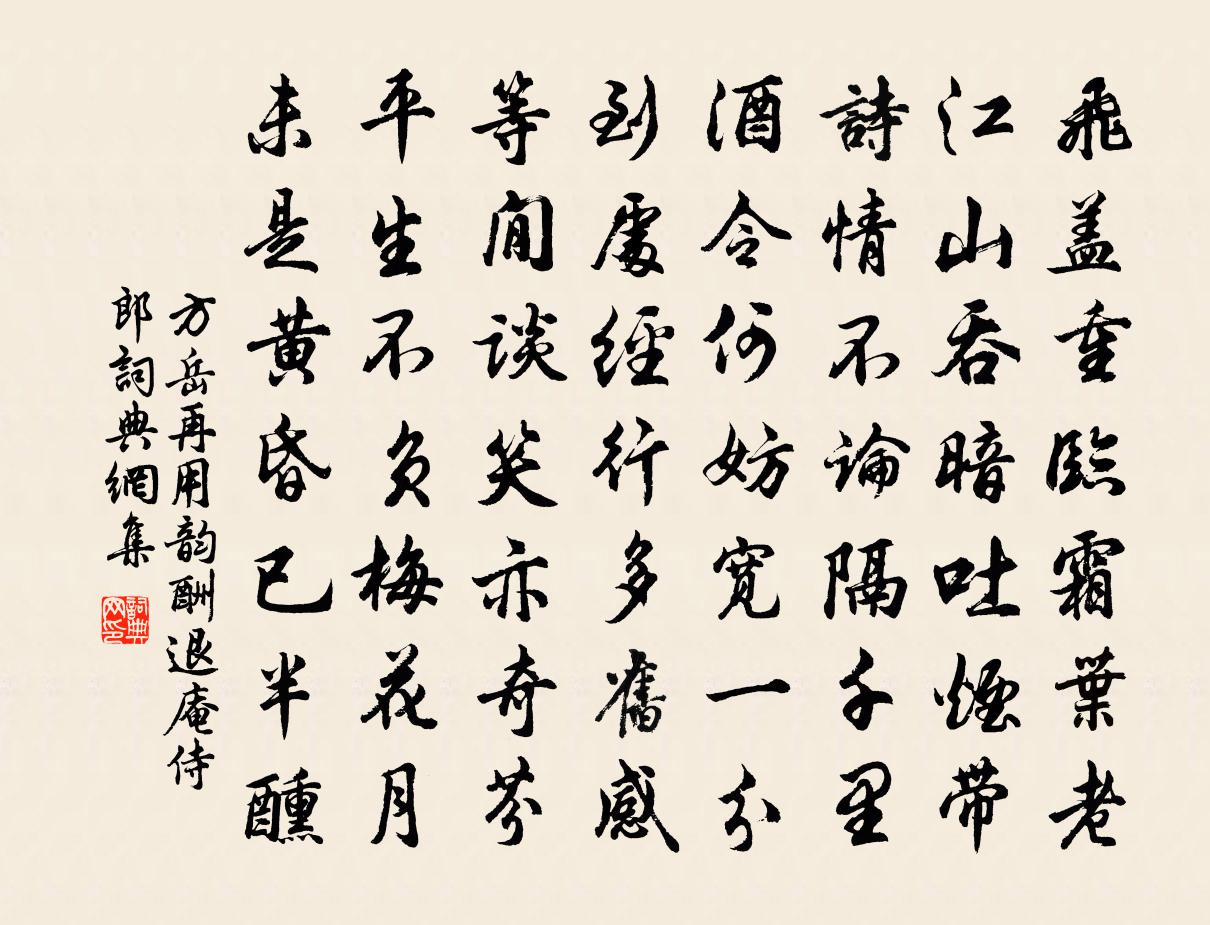 飛盖重臨霜葉老
江山吞暗吐煙帶
詩情不論隔千里
酒令何妨寛一分
到處經行多舊感
等閒談笑亦奇芬
平生不負梅花月
未是黄昏已半醺
方岳再用韵酬退庵侍
郎詞典網集
詞典网印